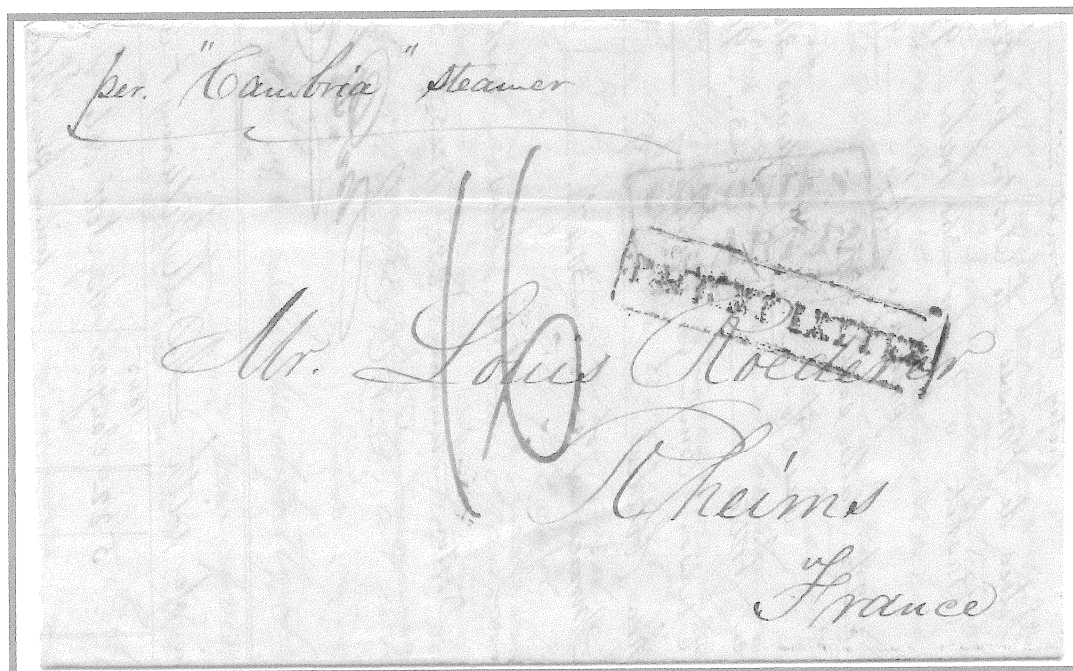 per. "Cambria" steamer
16
PACKET LETTER
Mr. Louis Roederer
Rheims
France